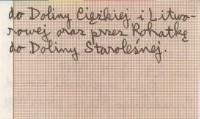 do Doliny Ciężkiej i Litwo-
rowej oraz przez Rohatkę
do Doliny Staroleśnej.